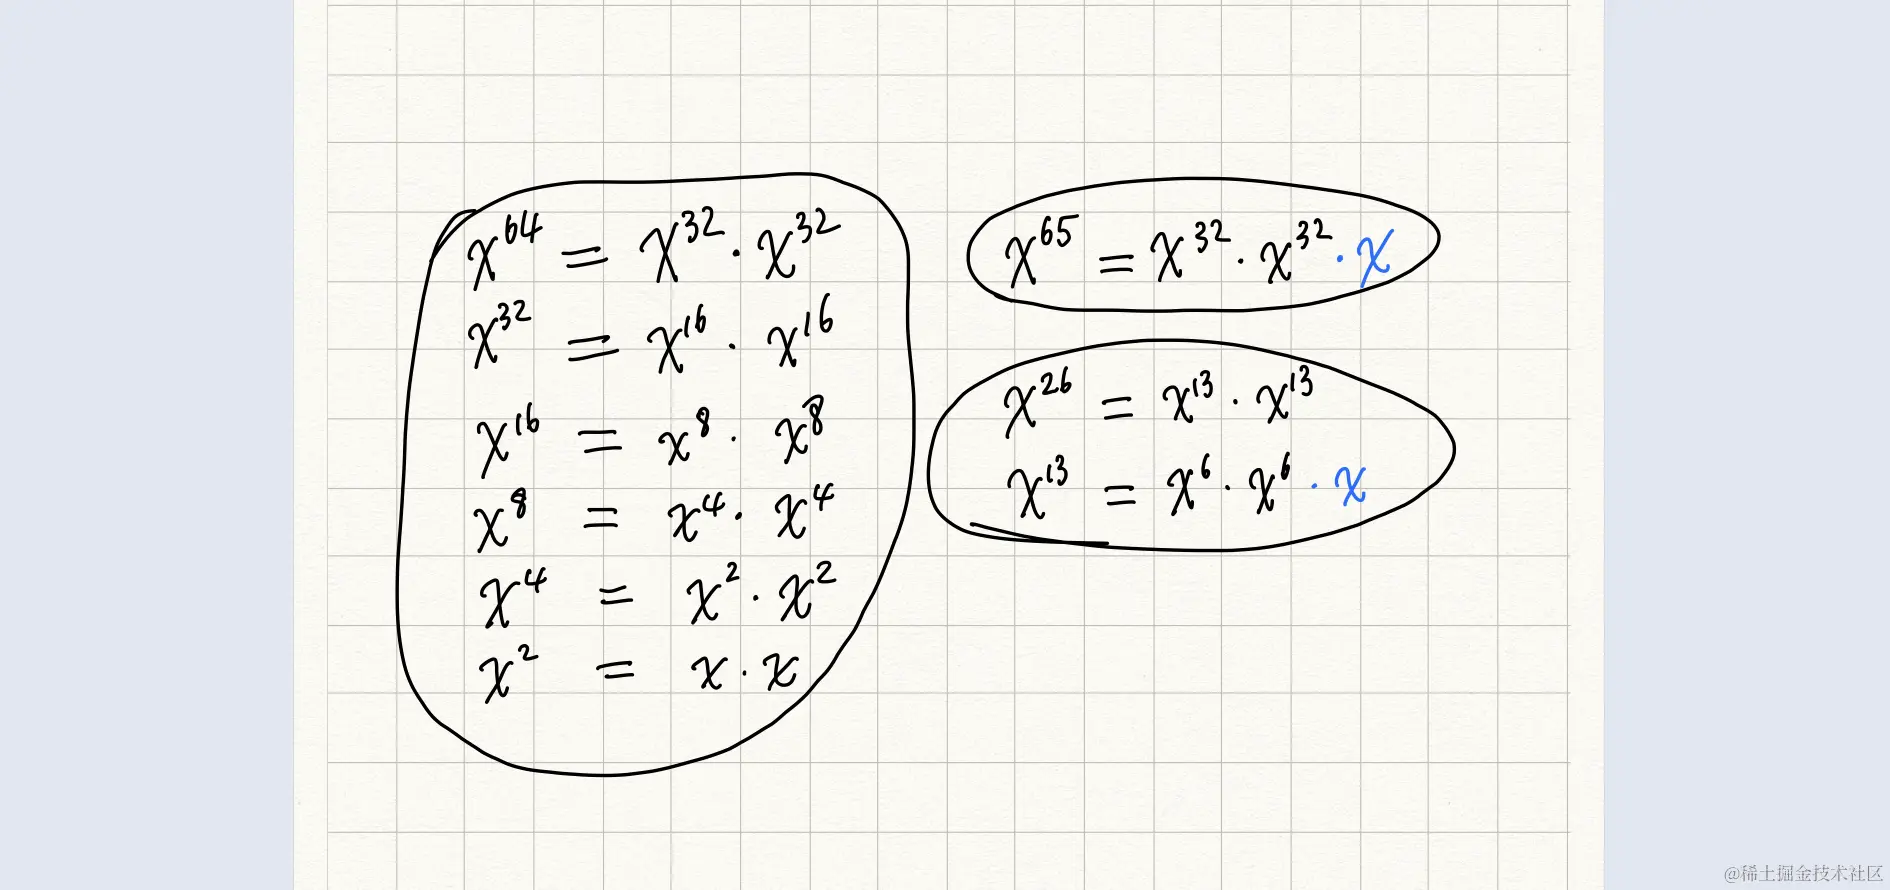 x⁶⁴ = x³² · x³²
x³² = x¹⁶ · x¹⁶
x¹⁶ = x⁸ · x⁸
x⁸ = x⁴ · x⁴
x⁴ = x² · x²
x² = x · x
x⁶⁵ = x³² · x³² · x
x²⁶ = x¹³ · x¹³
x¹³ = x⁶ · x⁶ · x
@稀土掘金技术社区